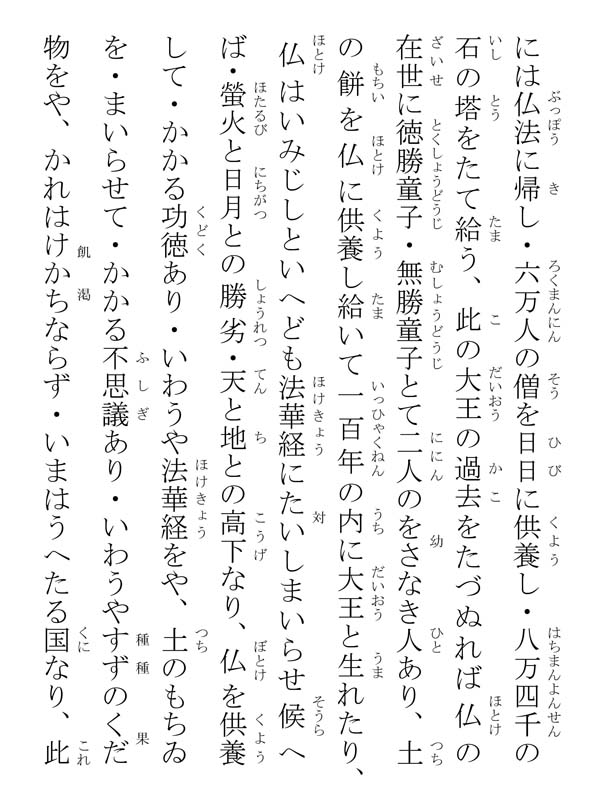 には仏法に帰し・六万人の僧を日日に供養し・八万四千の
石の塔をたて給う、此の大王の過去をたづぬれば仏の
在世に徳勝童子・無勝童子とて二人のをさなき人あり、土
の餅を仏に供養し給いて一百年の内に大王と生れたり、
仏はいみじしといへども法華経にたいしまいらせ候へ
ば・螢火と日月との勝劣・天と地との高下なり、仏を供養
して・かかる功徳あり・いわうや法華経をや、土のもちゐ
を・まいらせて・かかる不思議あり・いわうやすずのくだ
物をや、かれはけかちならず・いまはうへたる国なり、此